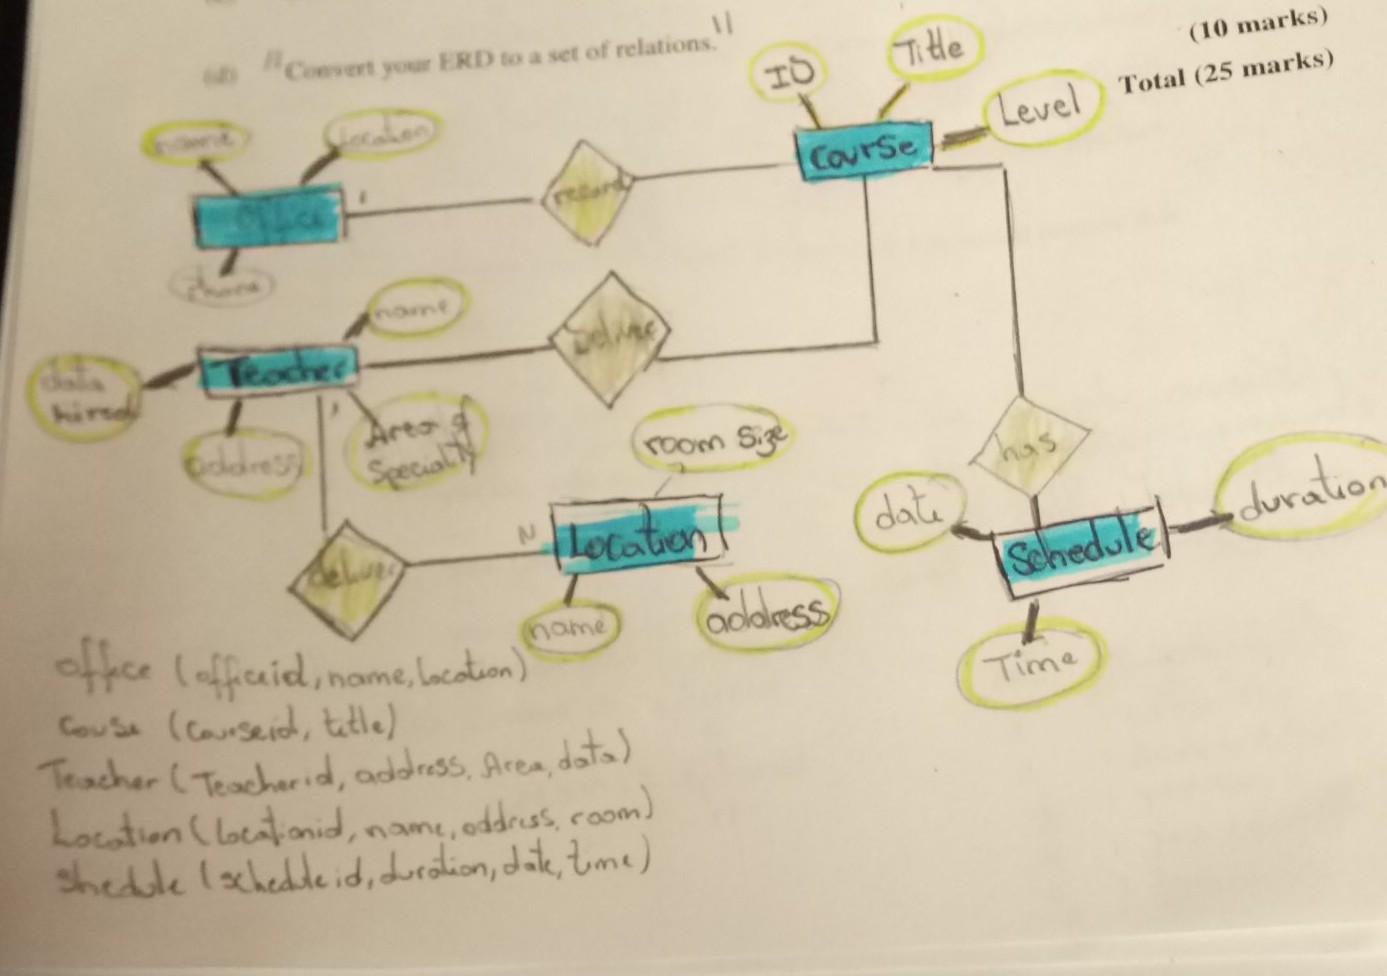 (10 marks)
(d) "Convert your ERD to a set of relations."
Total (25 marks)
ID
Title
Level
Course
name
Location
office
phone
1
record
name
Teacher
data
hired
address
Area of
Speciality
1
has
room size
N
Location
name
address
date
Schedule
duration
Time
office (officeid, name, location)
Couse (Courseid, title)
Teacher (Teacherid, address, Area, data)
Location (locationid, name, address, room)
Shedule (scheduleid, duration, date, time)